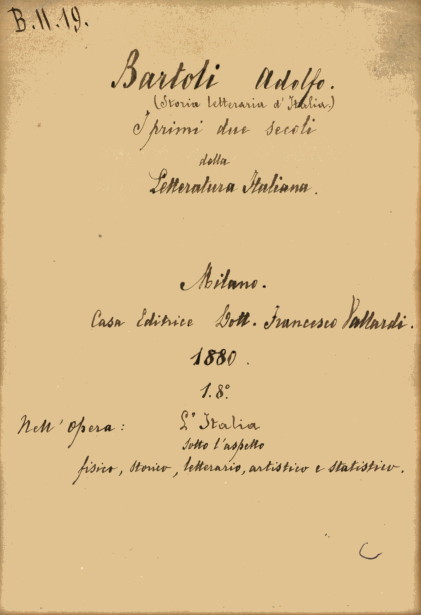 B.II.19.
Bartoli Adolfo.
(Storia letteraria d'Italia.)
I primi due secoli
della
Letteratura Italiana.
Milano.
Casa Editrice Dott. Francesco Vallardi.
1880.
1.8°.
Nell' Opera: L'Italia
sotto l'aspetto
fisico, storico, letterario, artistico e statistico.